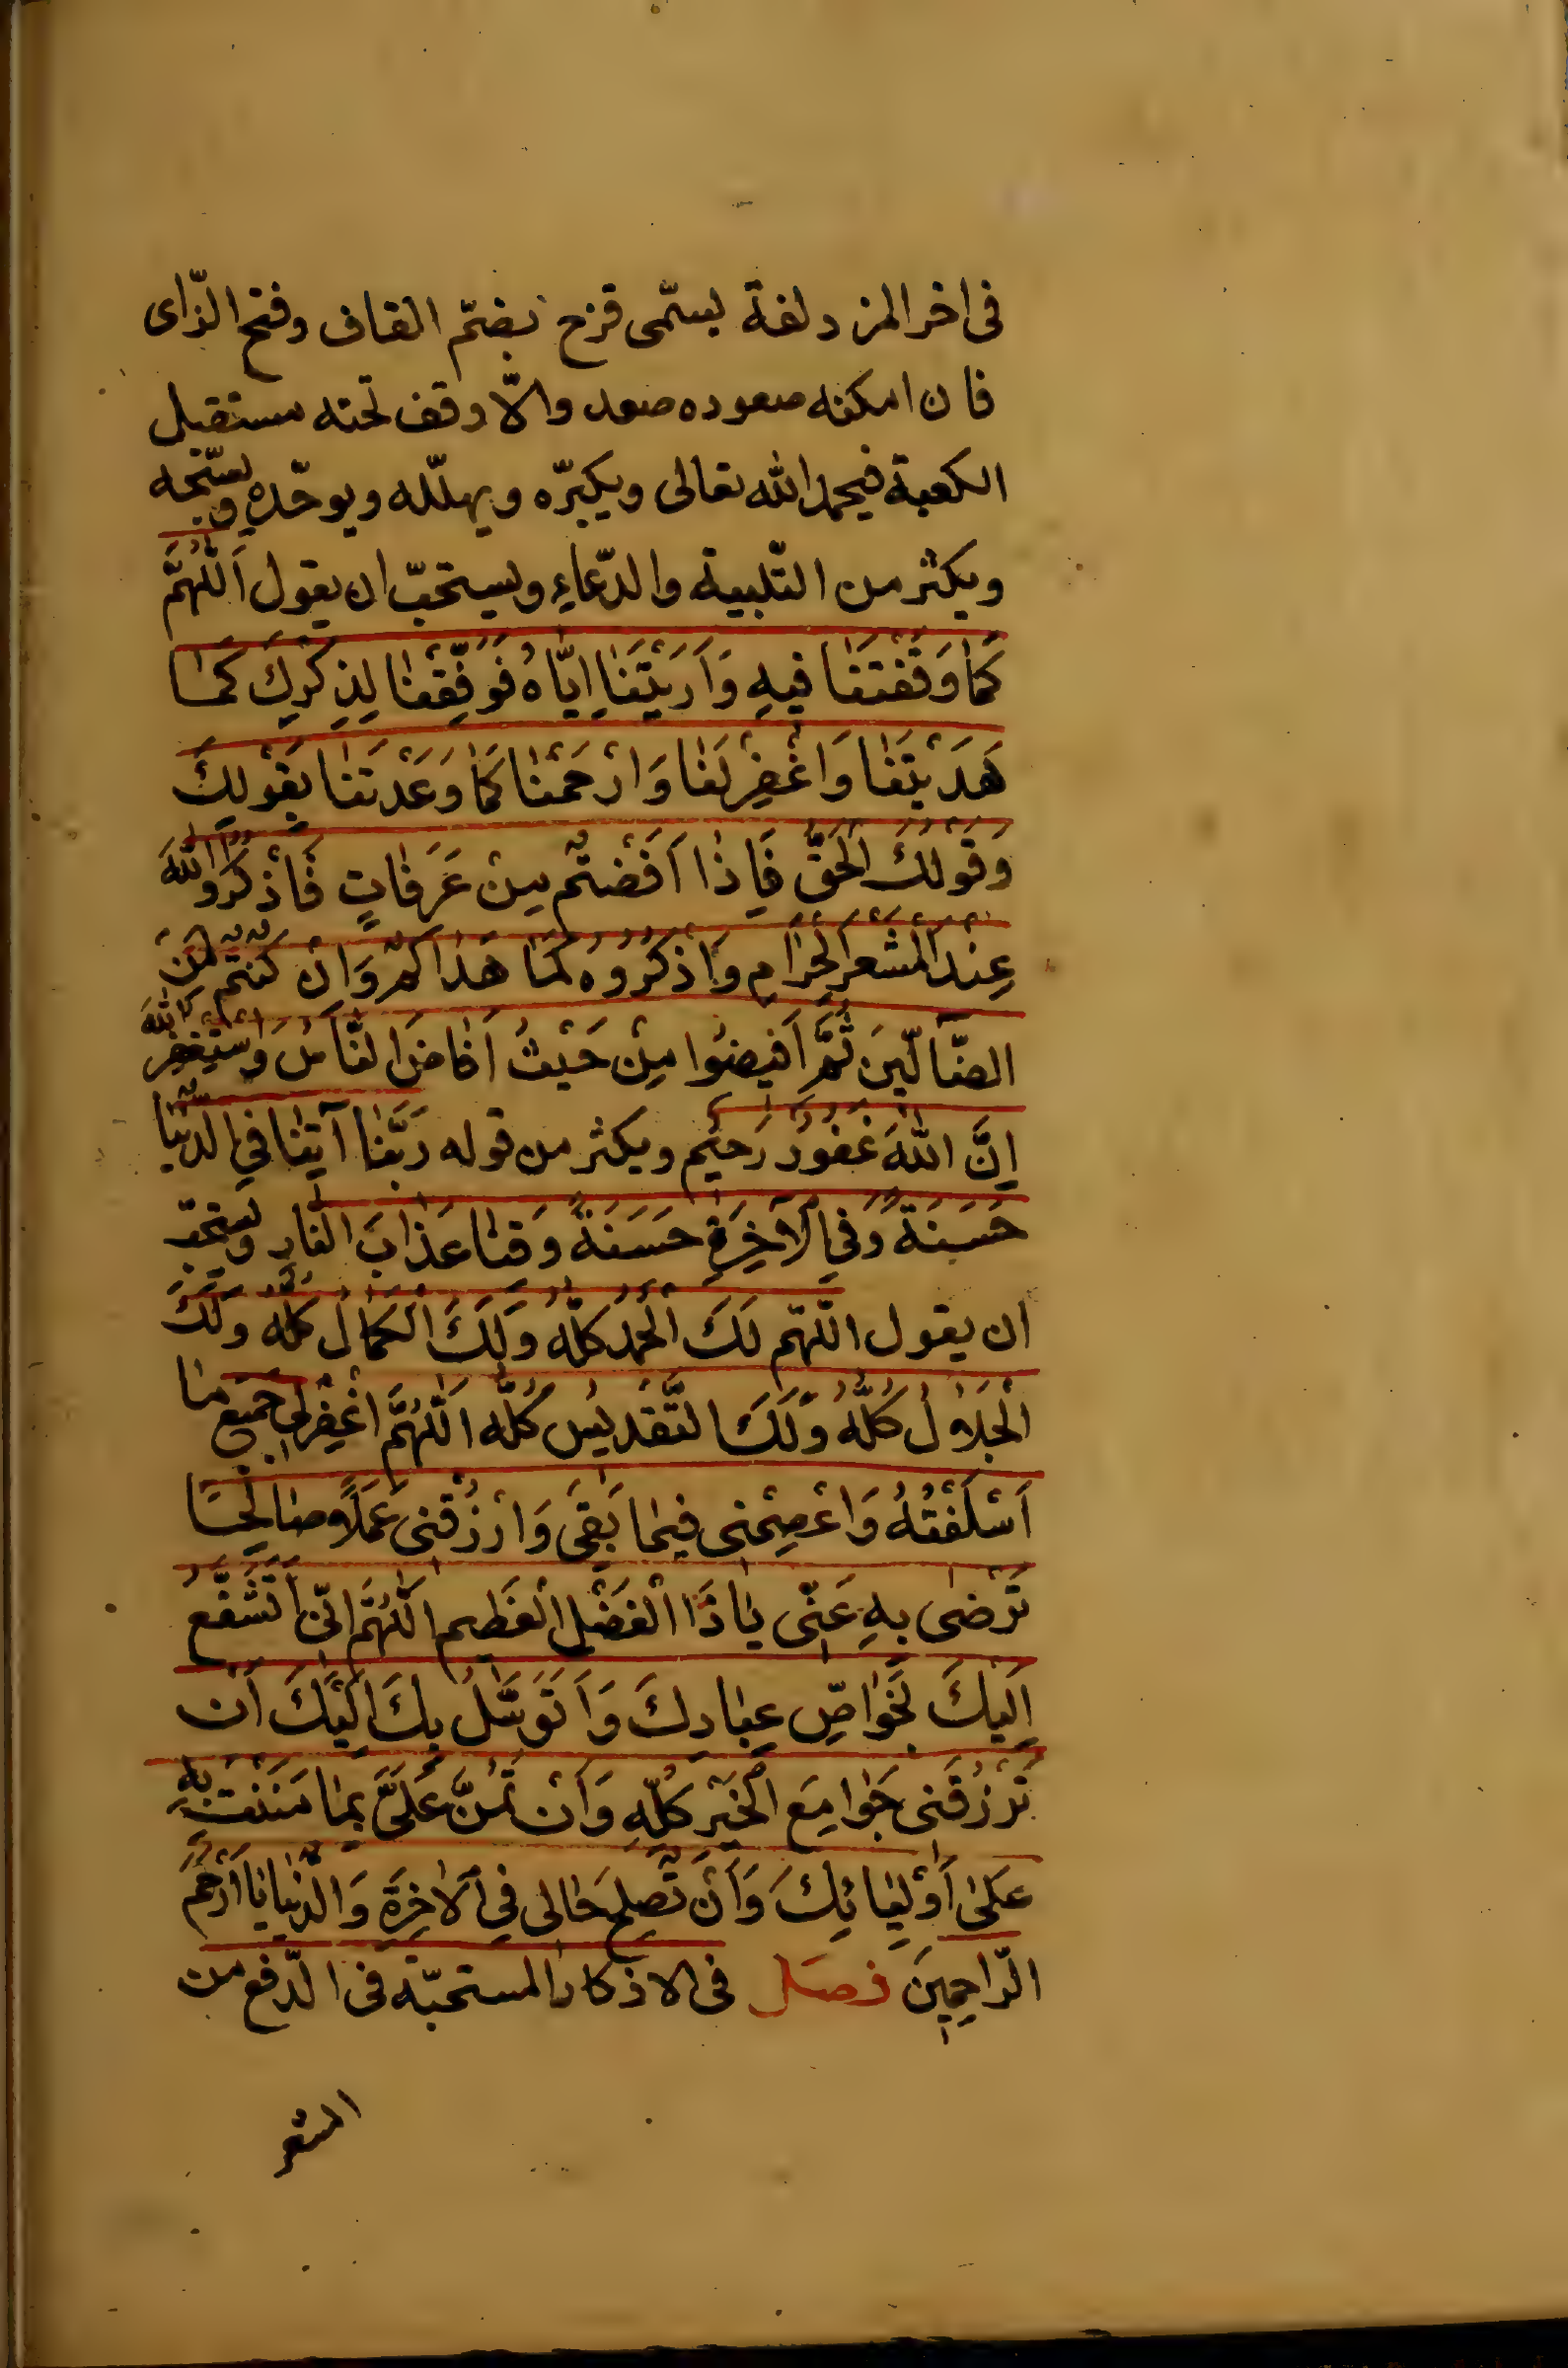 فى اخر المزدلفة يسمّى قزح بضمّ القاف وفتح الزّاى
فان امكنه صعوده صعد والّا وقف تحته مستقبل
الكعبة فيحمد الله تعالى ويكبّره ويهلّله ويوحّده ويسبّحه
ويكثر من التّلبية والدّعاءِ ويستحبّ ان يقول اَللّٰهُمَّ
كَمٰا وَقَفْتَنٰا فيهِ وَاَرَيْتَنٰا اِيّٰاهُ فَوَفِّقْنٰا لِذِكْرِكَ كَمٰا
هَدَيْتَنٰا وَاغْفِرْ لَنٰا وَارْحَمْنٰا كَمٰا وَعَدْتَنٰا بِقَوْلِكَ
وَقَوْلُكَ الْحَقُّ فَاِذٰا اَفَضْتُمْ مِنْ عَرَفٰاتٍ فَاذْكُرُوا اللّٰهَ
عِنْدَ الْمَشْعَرِ الْحَرٰامِ وَاذْكُرُوهُ كَمٰا هَدٰاكُمْ وَاِنْ كُنْتُمْ لَمِنَ
الضّٰالّينَ ثُمَّ اَفيضُوا مِنْ حَيْثُ اَفٰاضَ النّٰاسُ وَاسْتَغْفِرُ اللّٰهَ
اِنَّ اللّٰهَ غَفُورٌ رَحيْم ويكثر من قوله رَبَّنٰا آتِنٰا فِي الدُّنْيٰا
حَسَنَةً وَفِي الْآخِرَةِ حَسَنَةً وَقِنٰا عَذٰابَ النّٰارِ ويستحبّ
ان يقول اللّٰهمّ لَكَ الْحَمْدُ كُلُّهُ وَلَكَ الْكَمٰالُ كُلُّهُ وَلَكَ
الْجَلٰالُ كُلُّهُ وَلَكَ التَّقْديسُ كُلُّه اَللّٰهُمَّ اغْفِرْلى جَميعَ مٰا
اَسْلَفْتُهُ وَاعْصِمْنى فيمٰا بَقِيَ وَارْزُقْنى عَمَلًا صٰالِحًا
تَرْضى بِهِ عَنّى يٰا ذَا الْفَضْلِ الْعَظيم اَللّٰهُمَّ اِنّى اَتَشَفَّعُ
اِلَيْكَ بِخَوٰاصِّ عِبٰادِكَ وَاَتَوَسَّلُ بِكَ اِلَيْكَ اَنْ
تَرْزُقَنى جَوٰامِعَ الْخَيْرِ كُلِّهِ وَاَنْ تَمُنَّ عَلَيَّ بِمٰا مَنَنْتَ بِهِ
عَلىٰ اَوْلِيٰائِكَ وَاَنْ تُصْلِحَ حٰالى فِي الْاٰخِرَةِ وَالدُّنْيٰا يٰا اَرْحَمَ
الرّاحِمِينَ فصل فى الاذكار المستحبّة فى الدّفع من
المشعر